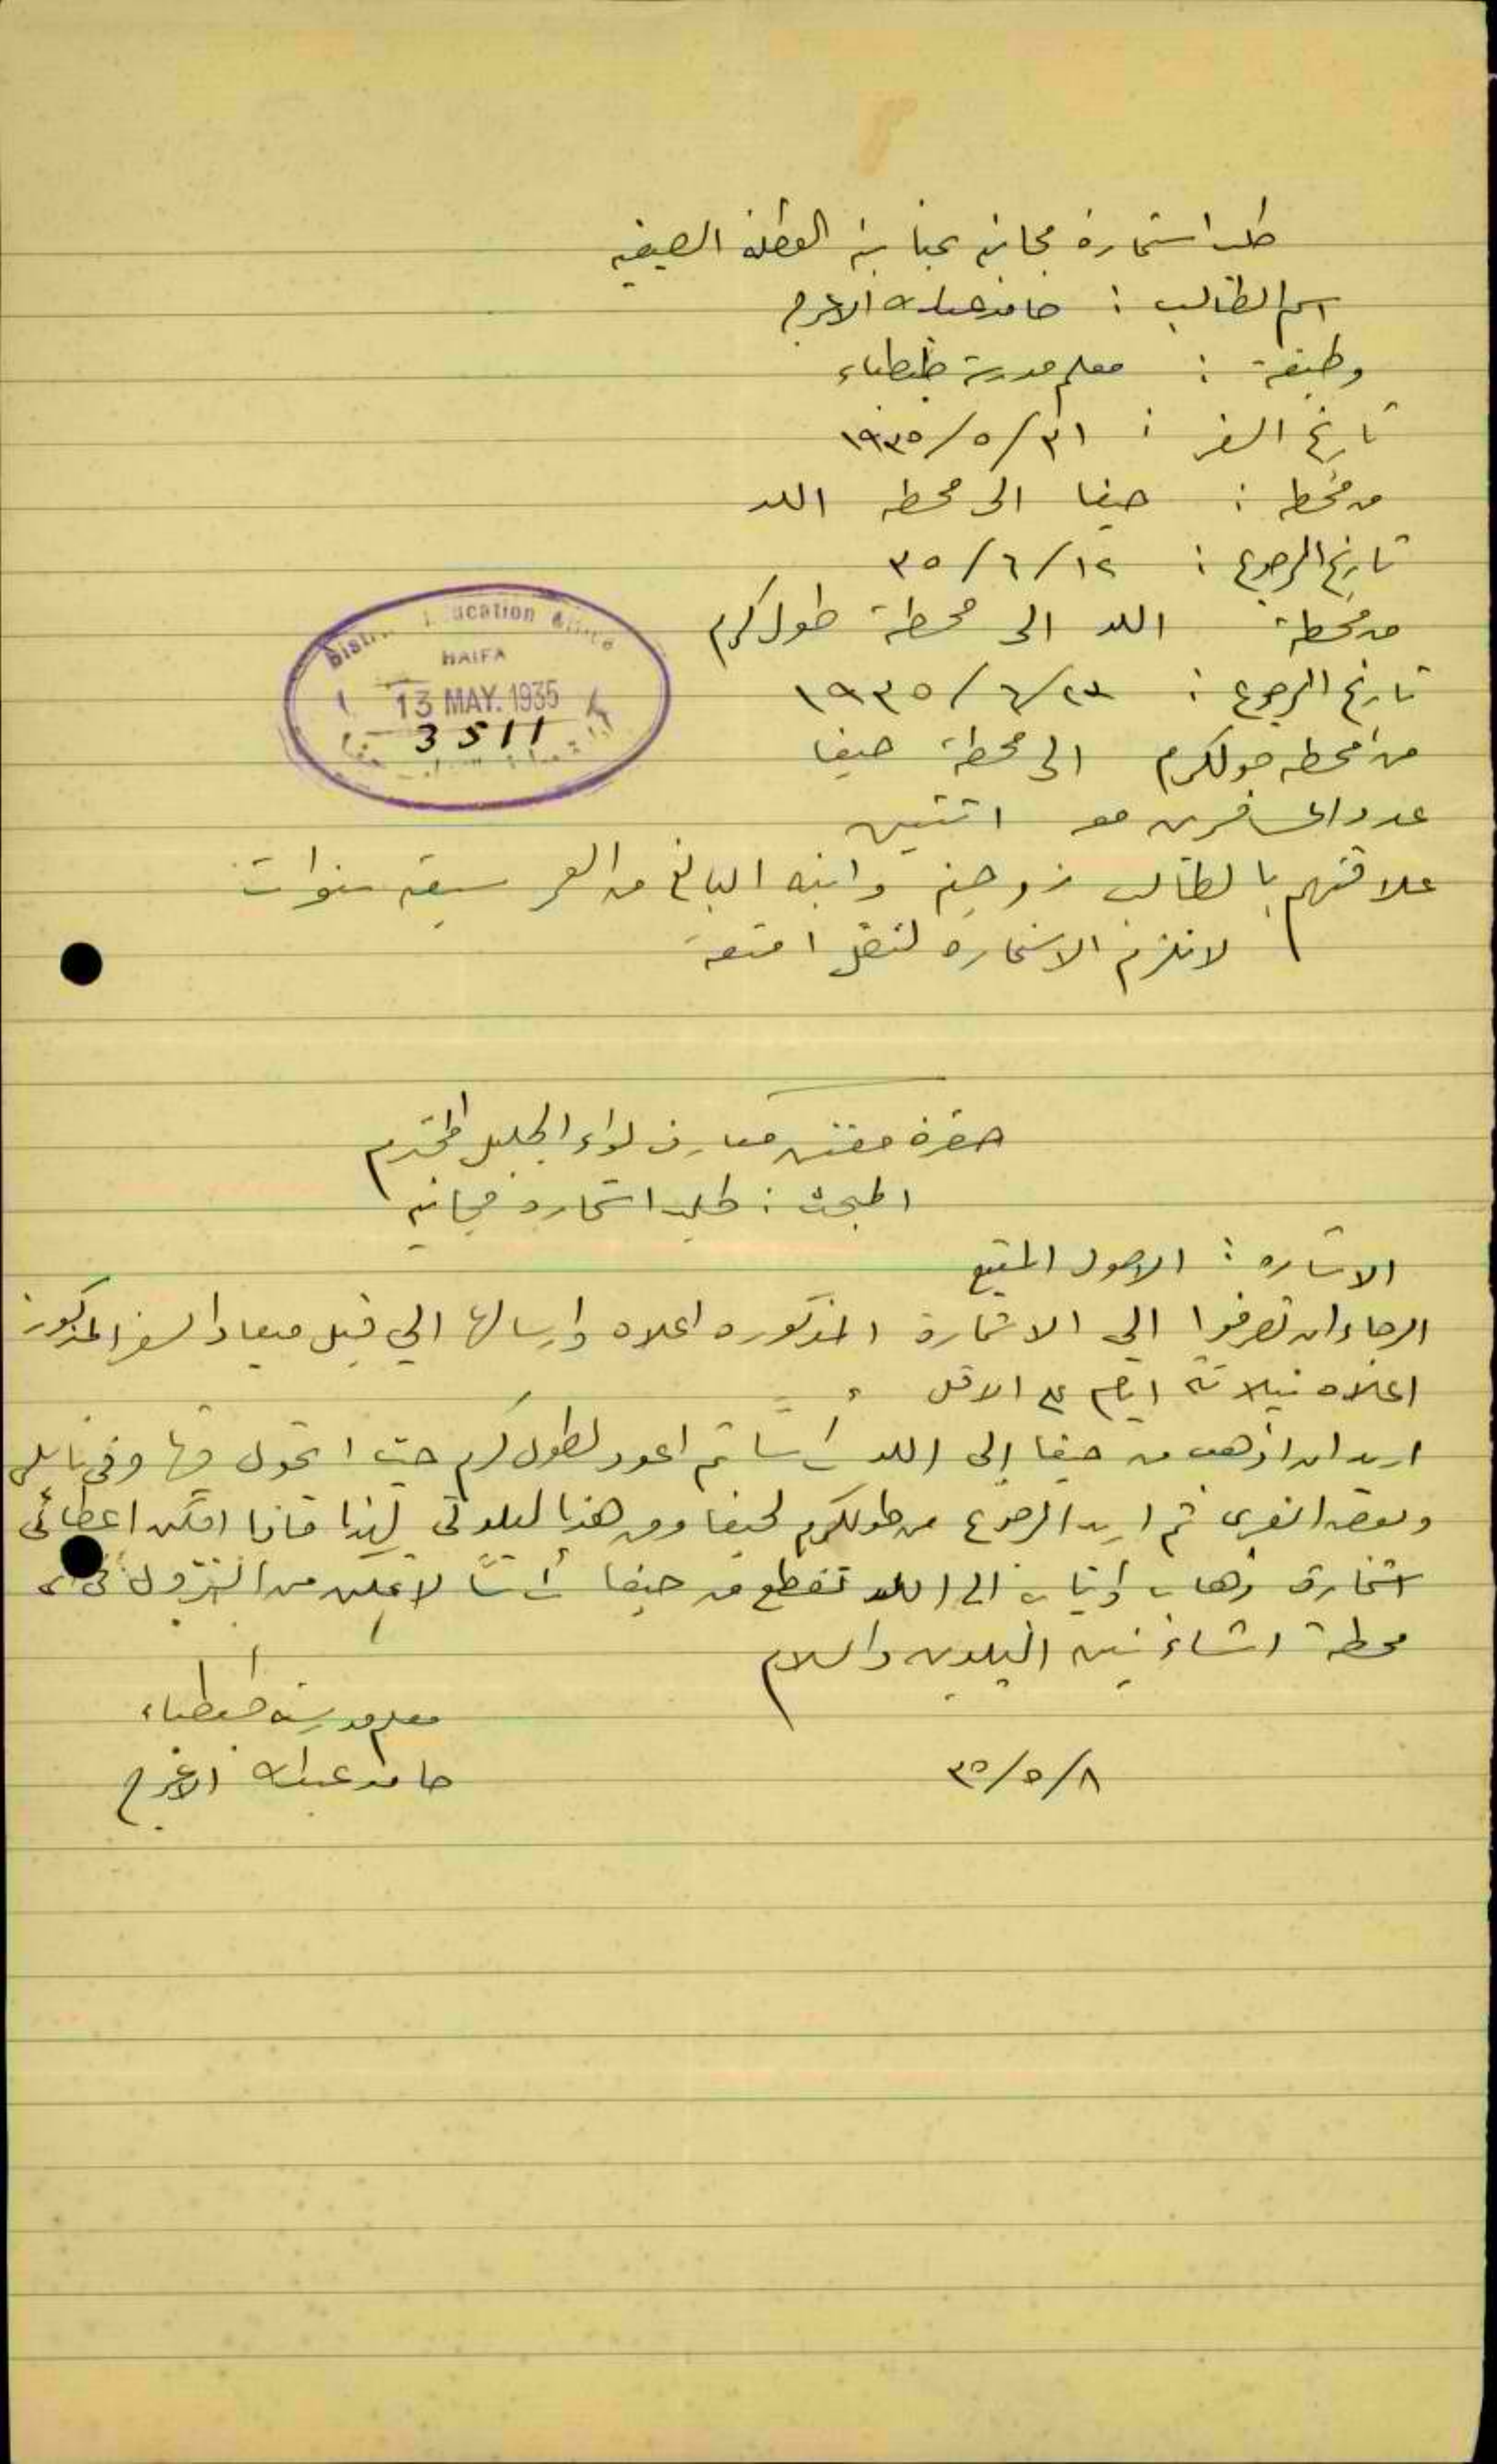 طلب استمارة مجانية بمناسبة العطلة الصيفية
اسم الطالب : حامد عبدالله الاعرج
وظيفته : معلم مدرسة طبطباء
تاريخ السفر : ٣١/٥/١٩٣٥
من محطة : حيفا الى محطة اللد
تاريخ الرجوع : ١٢/٦/٣٥
من محطة اللد الى محطة طول كرم
تاريخ الرجوع : ٢٣/٦/١٩٣٥
من محطة طولكرم الى محطة حيفا
عدد المسافرين معه اثنين
علاقتهم بالطالب زوجته وابنه البالغ من العمر سبعة سنوات
لا تلزم الاستمارة لنقل امتعة
District Education Office
HAIFA
13 MAY. 1935
3511
حضرة مفتش معارف لواء الجليل المحترم
المبحث : طلب استمارة مجانية
الاشارة : الاصول المتبع
الرجاء ان تصرفوا الي الاستمارة المذكورة اعلاه وارسالها الي قبل ميعاد السفر المذكور
اعلاه بثلاثة ايام على الاقل
اريد ان اذهب من حيفا الى اللد رأسا ثم اعود لطول كرم حيث اتجول فيها وفي نابلس
وبعض القرى ثم اريد الرجوع من طولكرم لحيفا ومن هذا لبلدتي لهذا فاذا امكن اعطائي
استمارة ذهاب وإياب الى اللد تقطع من حيفا رأساً لاتمكن من النزول في اي
محطة اشاء بين البلدين والسلام
معلم مدرسة طبطباء
حامد عبدالله الاعرج
٨/٥/٣٥